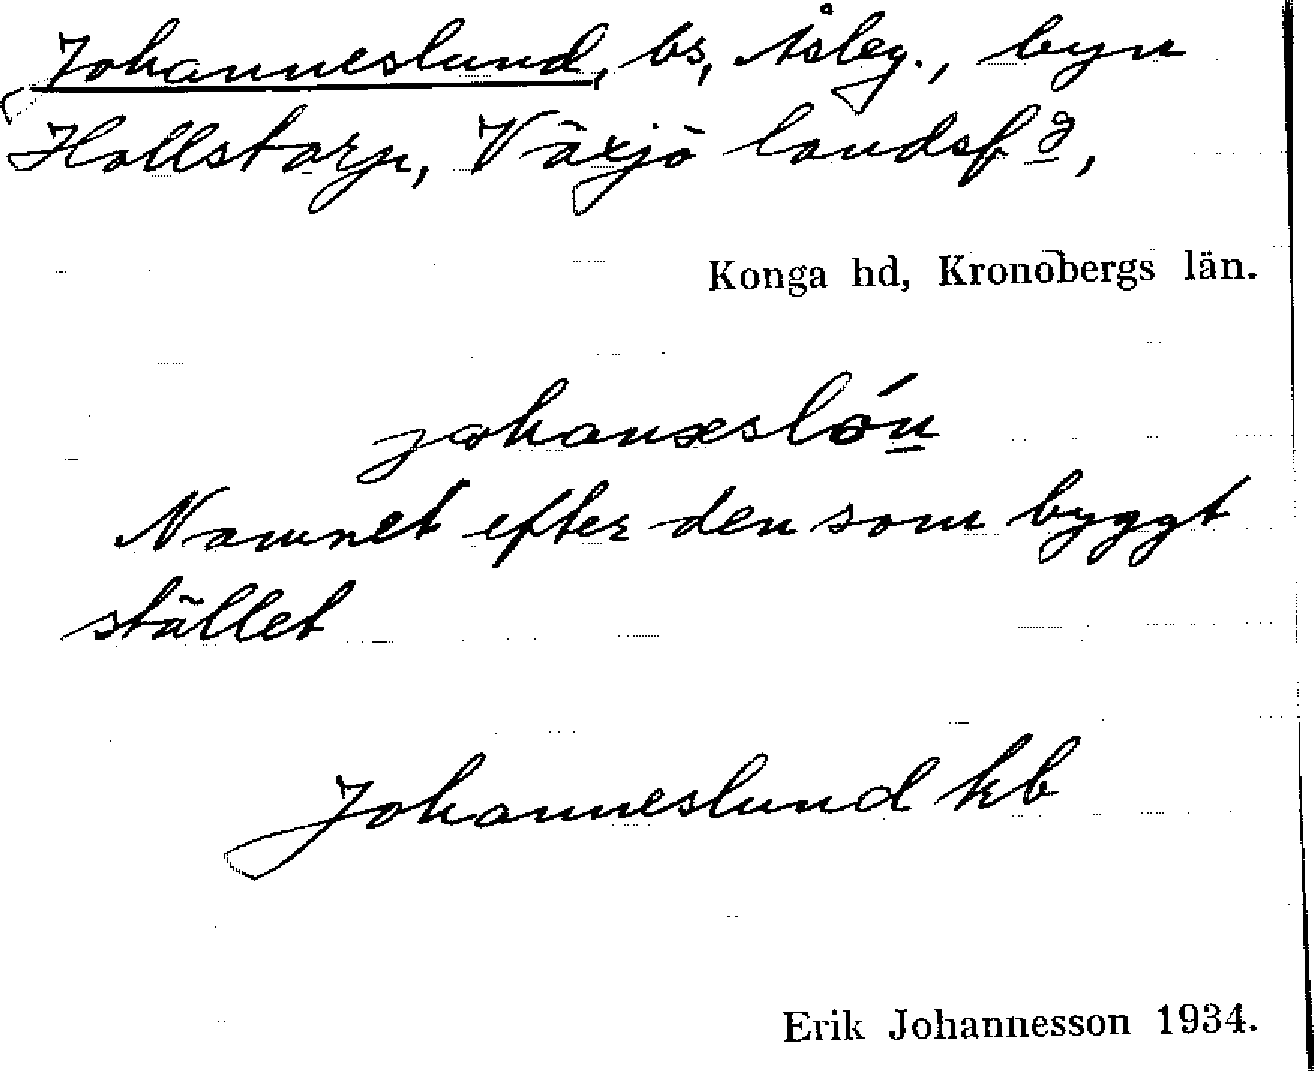 Johanneslund, bs, Åsleg., byn
Hollstorp, Växjö landsfg,
Konga hd, Kronobergs län.
johanæslón
Namnet efter den som byggt
stället
Johanneslund kb
Erik Johannesson 1934.